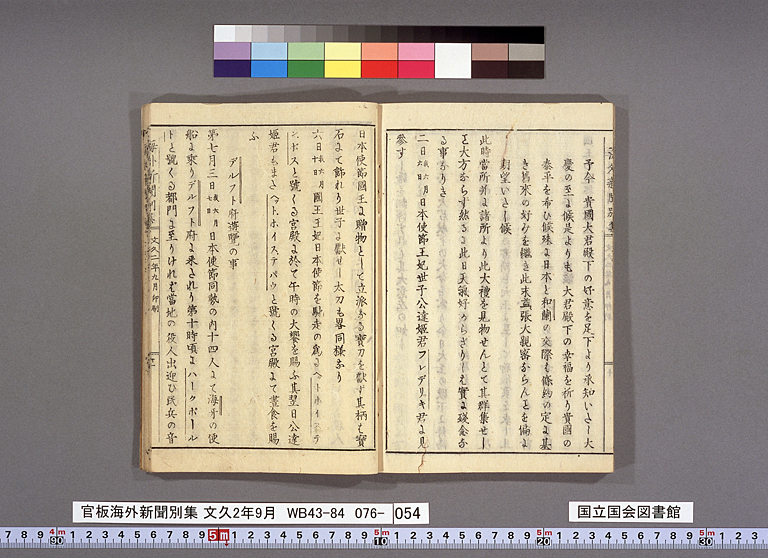 予今 貴國大君殿下の好意を足下より承知いさし大
慶の至よ候是よりも 大君殿下の幸福を祈り貴國の
泰平を希ひ候殊よ日本と和蘭の交際も條約の定よ基
き舊來の好みを繼き此末益張大親密ならんとを偏よ
期望いさし候
此時當所并よ諸所より此大禮を見物せんとて其群集せし
と大方ならす然るよ此日天氣好からざりしも實よ殘念な
る事なりき
二日我六月日本使節王妃世子公達姫君フレデリッキ君よ見
參す
日本使節國王よ贈物として立派なる寶刀を獻す其柄も寶
石よて飾れり世子よ獻せし太刀も畧同様なり
六日我六月十日國王王妃日本使節を馳走の爲
と號くる宮殿よ於て午時の大饗を賜ふ其翌日公達
姫君もまさヘトホイステパウと號くる宮殿よて晝食を賜
ふ
デルフト府遊覽の事
第七月三日我六月七日日本使節同勢の内十四人よて海牙の使
船よ乗りデルフト府よ來されり第十時頃よハークポール
トと號くる都門よ至りけれは當地の役人出迎ひ民兵の音
海外新聞別集
文久二年九月印刻
官板海外新聞別集 文久2年9月 WB43-84 076- 054
国立国会図書館